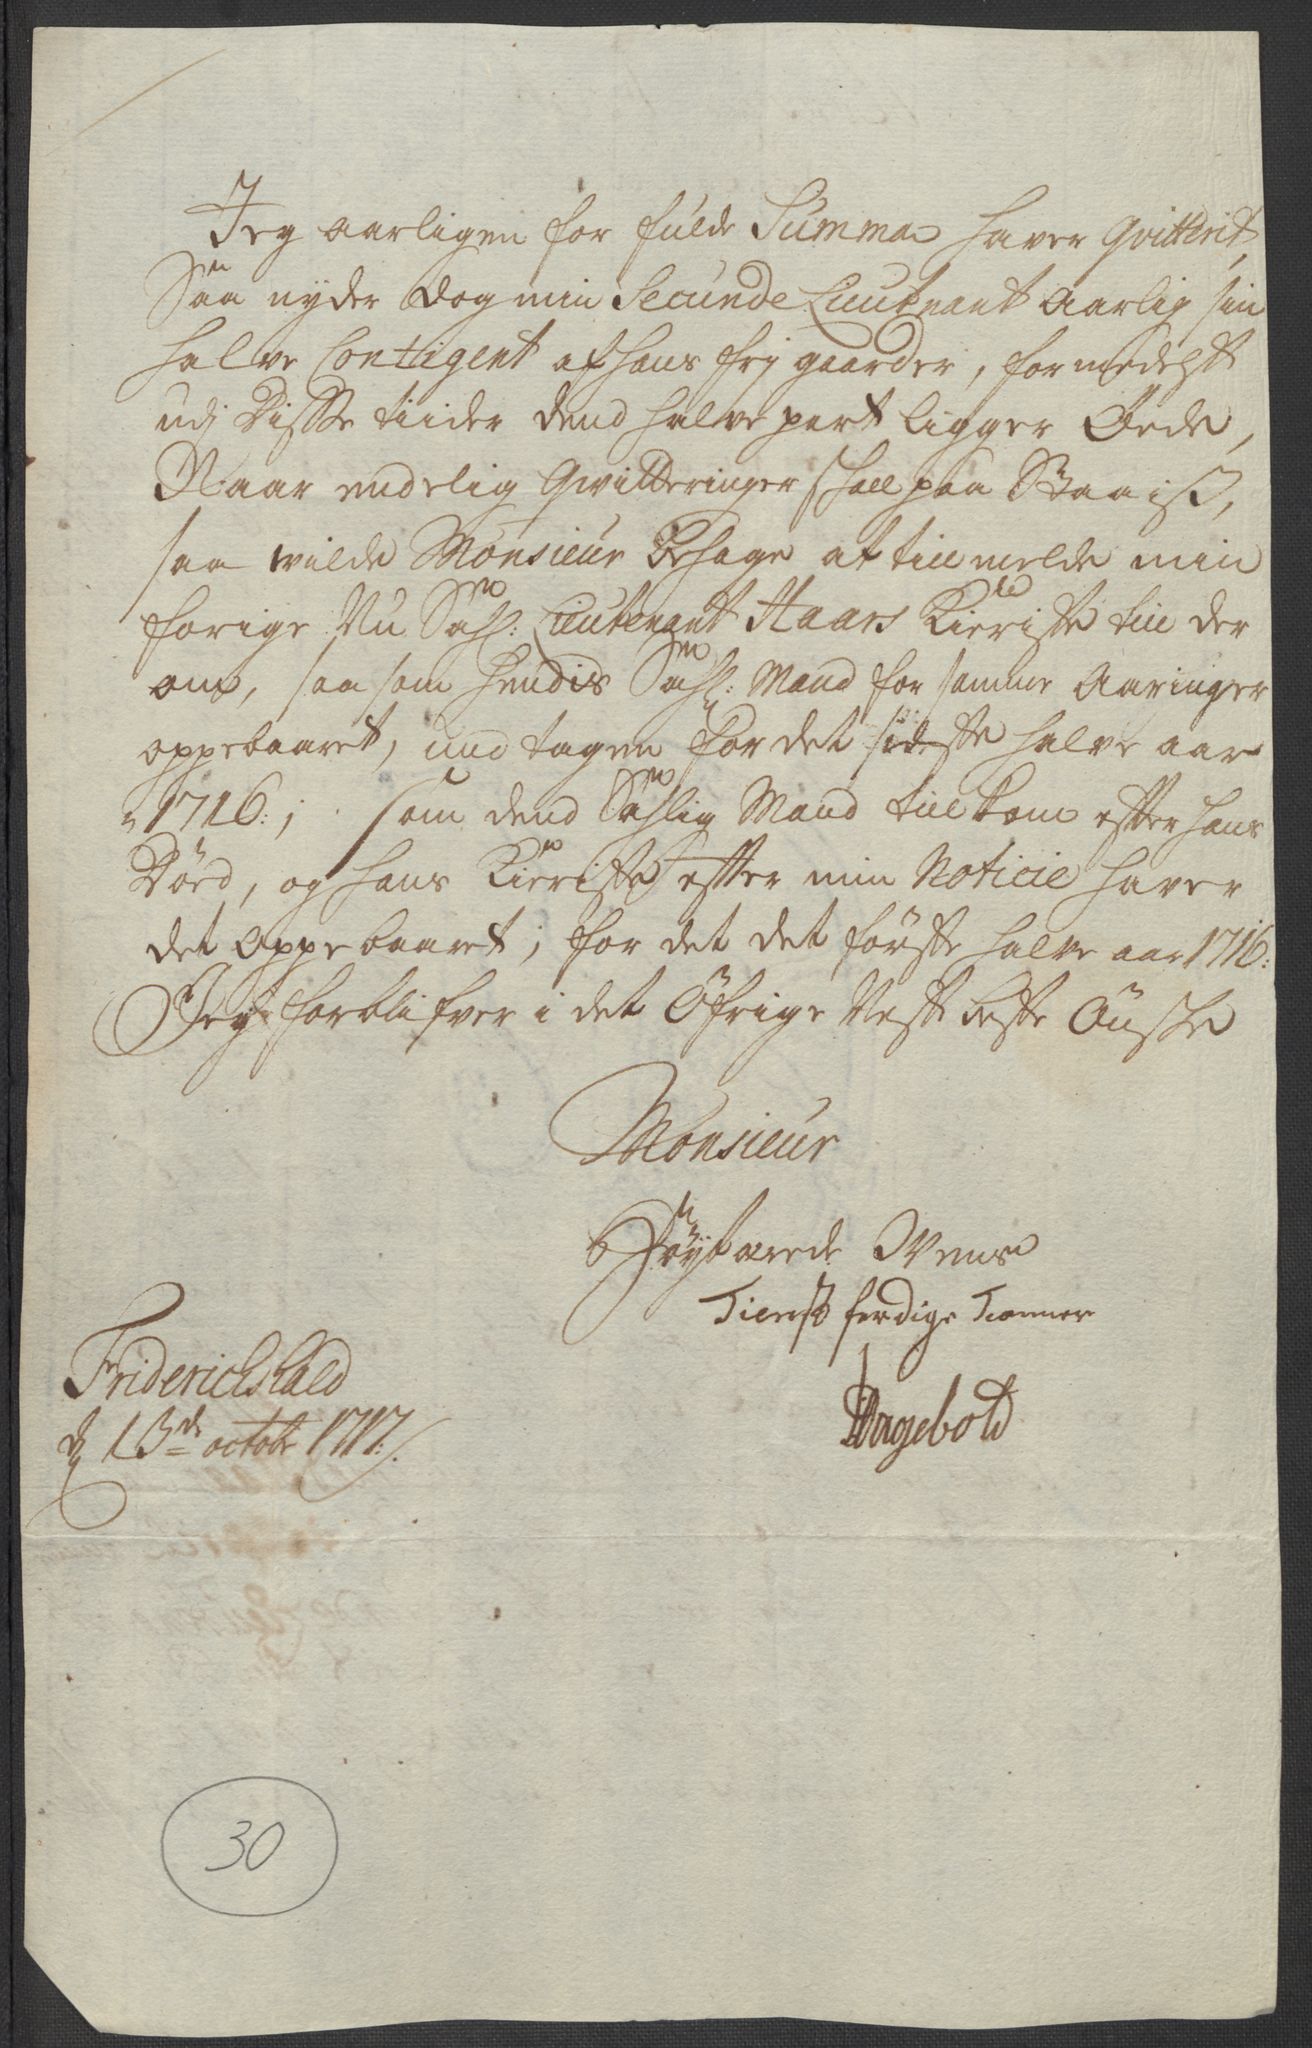 Jeg aarligen for fulde Summa haver qvitterit,
Saa nyder dog min Secunde Lieutnant Aarlig sin
halve Contigent af hans frj gaarder, formedelst
udj disse tiider dend halve part ligger Øede,
Naar endelig Qvitteringer skall paa
saa wilde Monsieur Behage at tillmelde min
forige Nu Sahl: Lieutenant Haars Kieriste till der
om, saa som hendis Sahl: Mand for samme Aaringer
oppebaaret, und tagen for det sidste halve aar
1716:; som dend Sahlig Mand till kom efter hans
Döed, og hans Kieriste efter min Noticie haver
det oppebaaret; for det det förste halve aar 1716:
Jeg forblifver i det Öfrige Nest beste Önske
Monsieur
Höyt ærede Wens
Tienst ferdige Tienner
Friderichshald
d 13de octobr 1717:/.
30